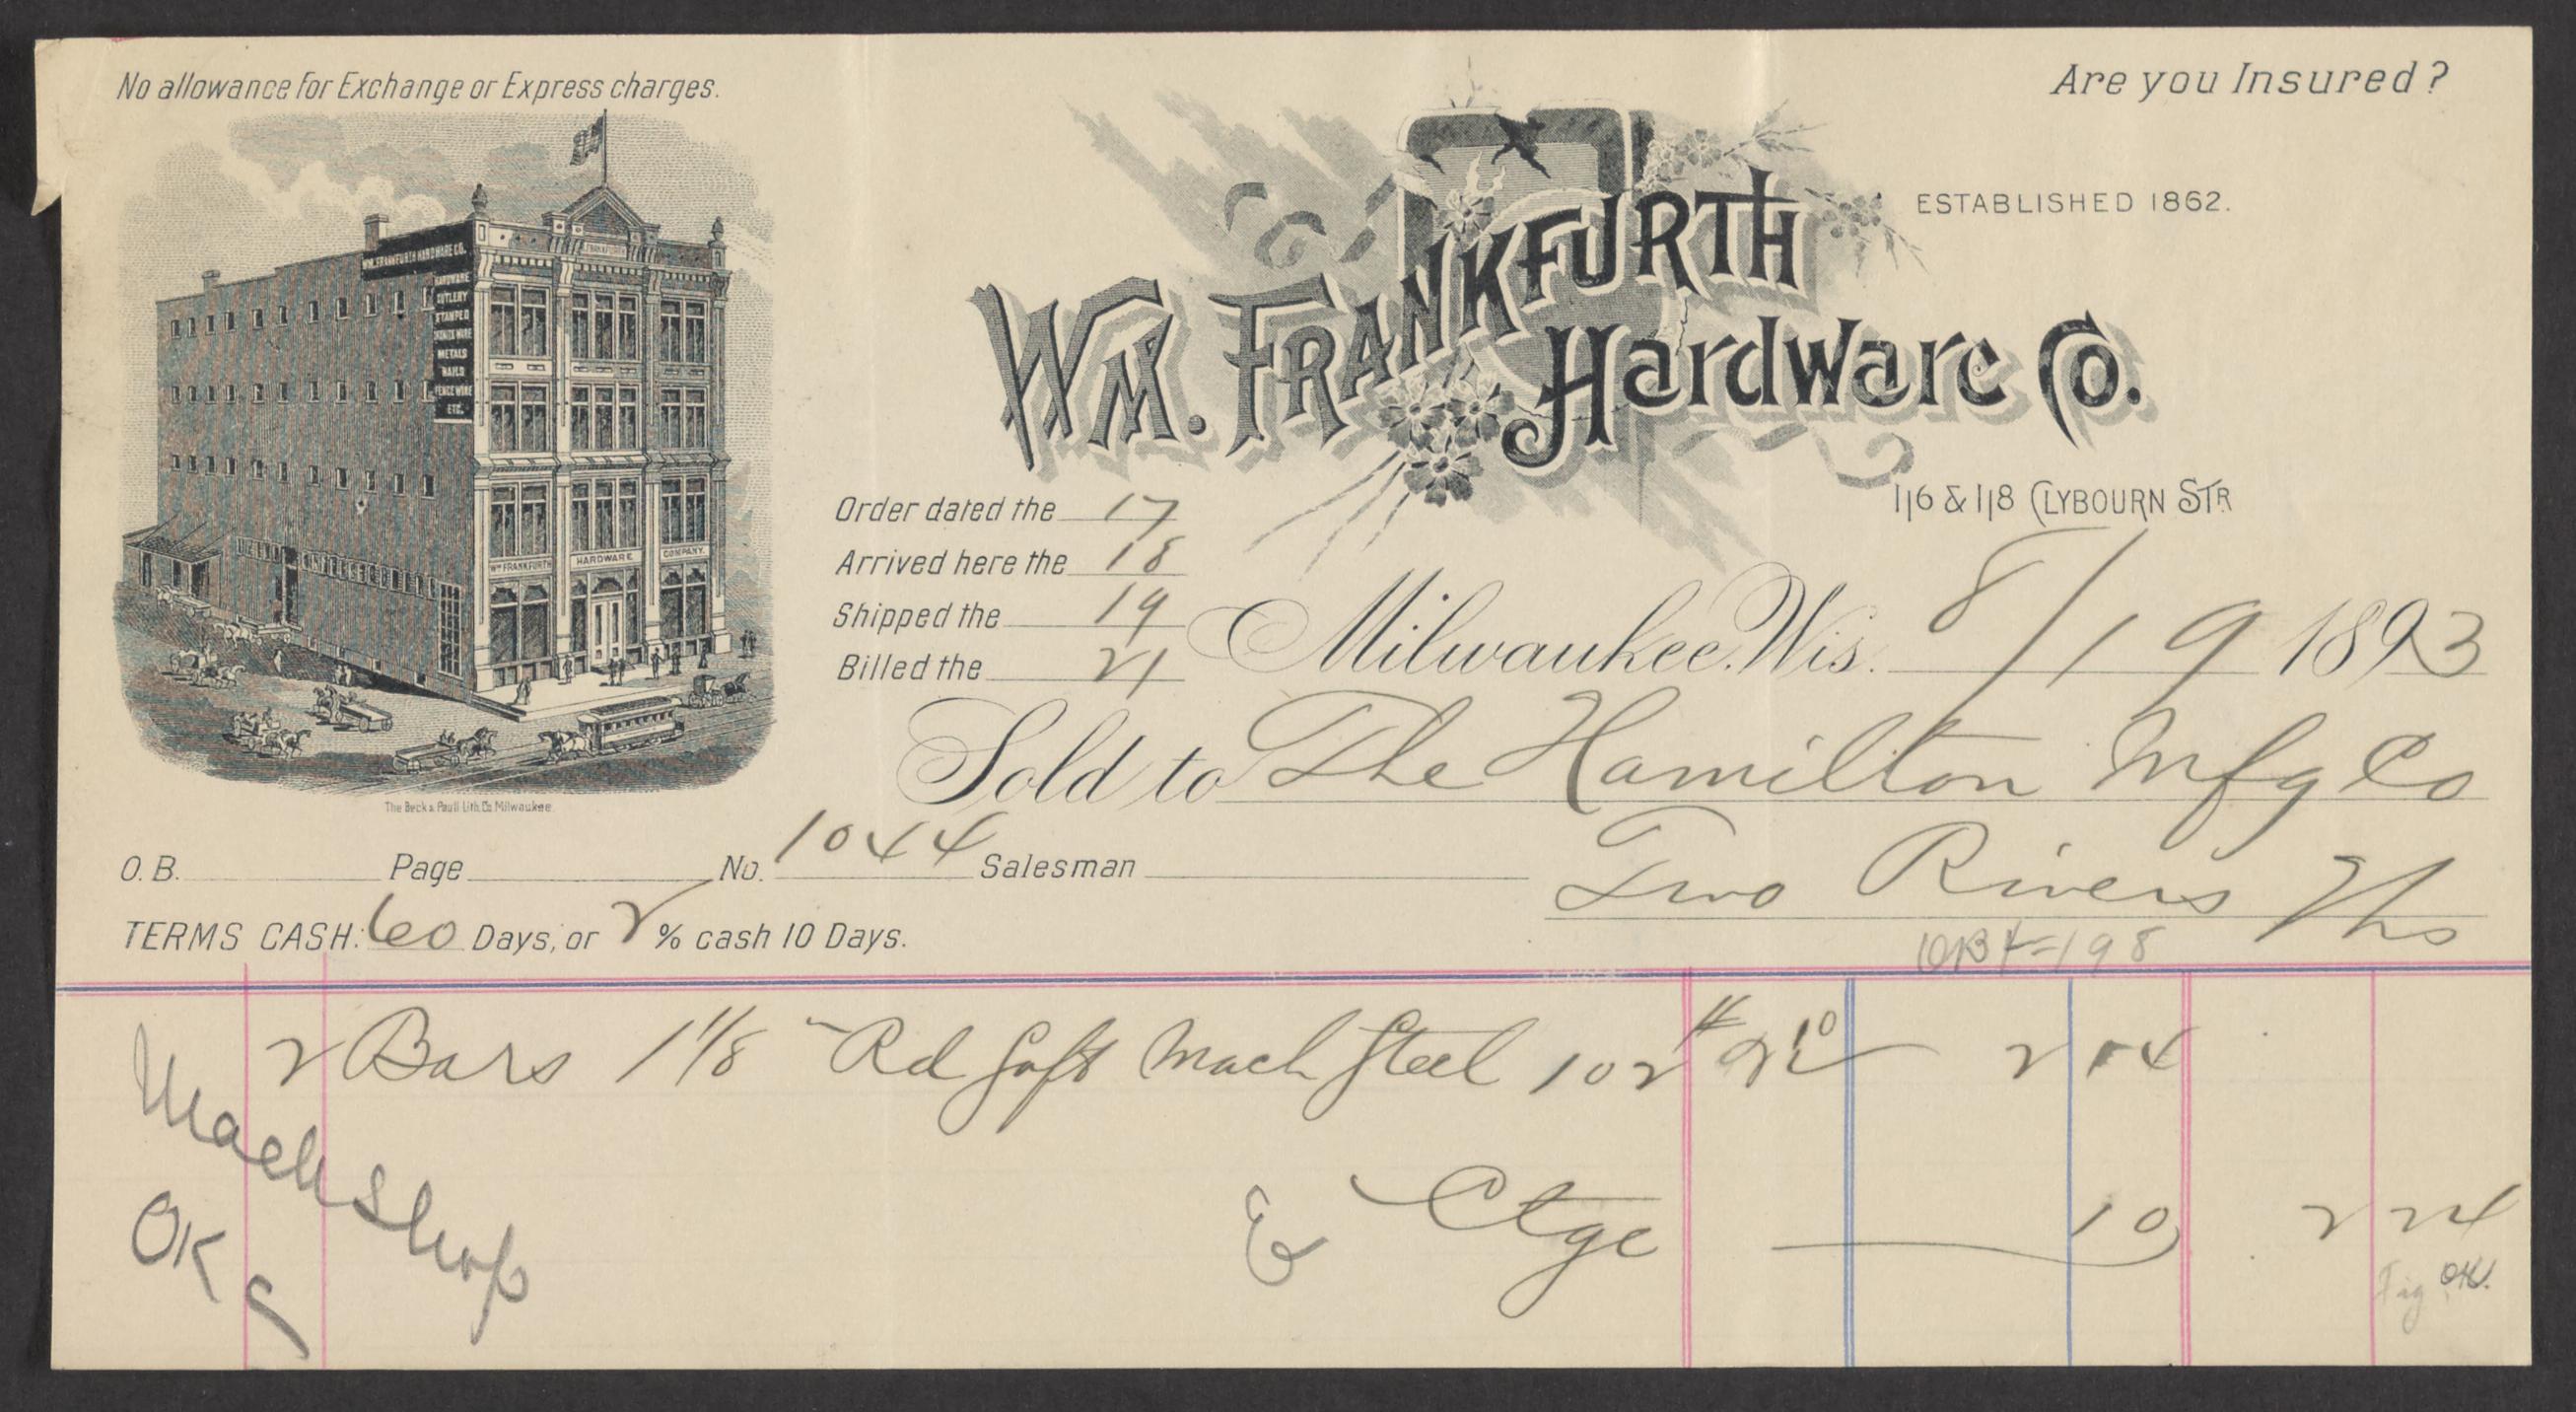 No allowance for Exchange or Express charges.
Are you Insured?
WM. FRANKFURTH HARDWARE CO.
HARDWARE
CUTLERY
STAMPED
METALS
NAILS
FENCE WIRE
ETC.
FRANKFURTH
WM FRANKFURTH HARDWARE COMPANY.
The Beck & Pauli Lith. Co. Milwaukee.
ESTABLISHED 1862.
WM. FRANKFURTH
Hardware Co.
116 & 118 CLYBOURN STR
Order dated the 17
Arrived here the 18
Shipped the 19
Billed the 21
Milwaukee, Wis. 8/19 1893
Sold to The Hamilton Mfg Co
Two Rivers Wis
O.B. Page No. 1044 Salesman
TERMS CASH: 60 Days, or 2 % cash 10 Days.
198
2 Bars 1 1/8 " Rd Soft Mach Steel 102 # 2 10 2 14
& Ctge 10 2 24
Mach Shop
OK
Fig OK.